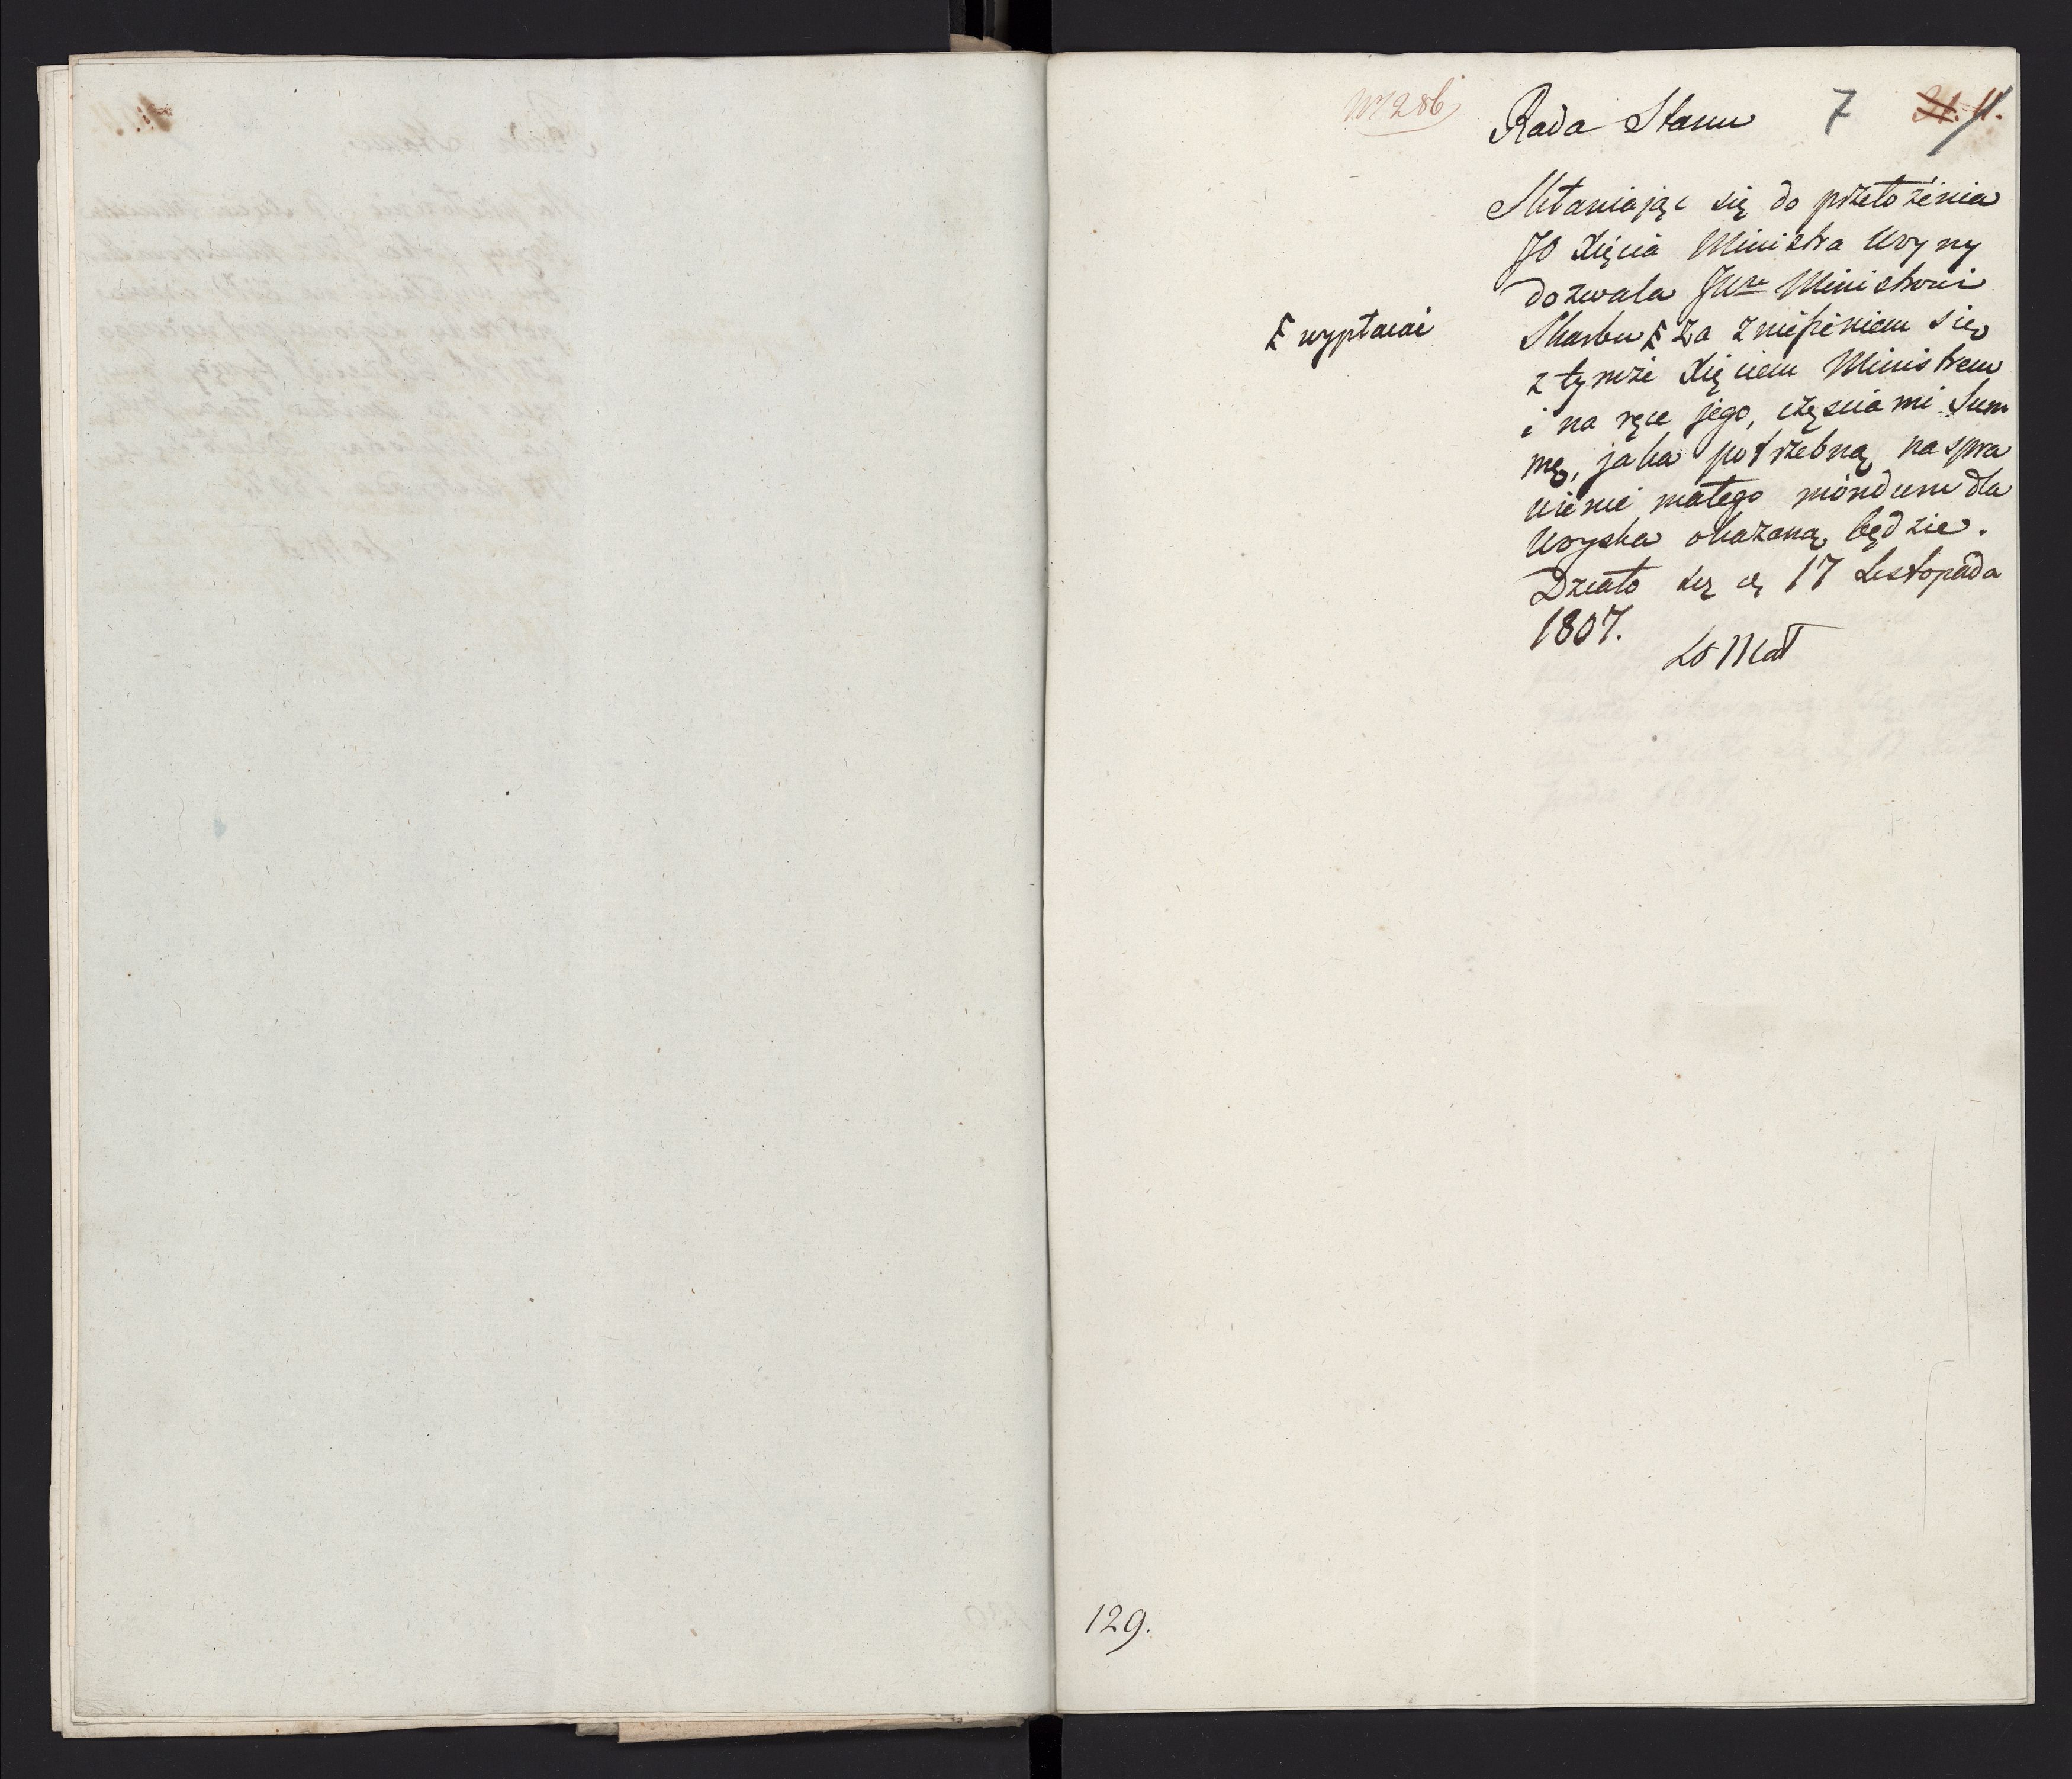 Nr 286
Rada Stanu 7 21. 11.
Skłaniając się do przełożenia
JO Xięcia Ministra Woyny
dozwala JWu Ministrowi
Ł wypłacać
Skarbu Ł za zniesieniem się
z tymże Xięciem Ministrem
i na ręce jego, częściami Sum
mę, jaka potrzebną na spra
wienie małego mondunu dla
Woyska okazaną będzie.
Działo się d. 17 Listopada
1807.
129.